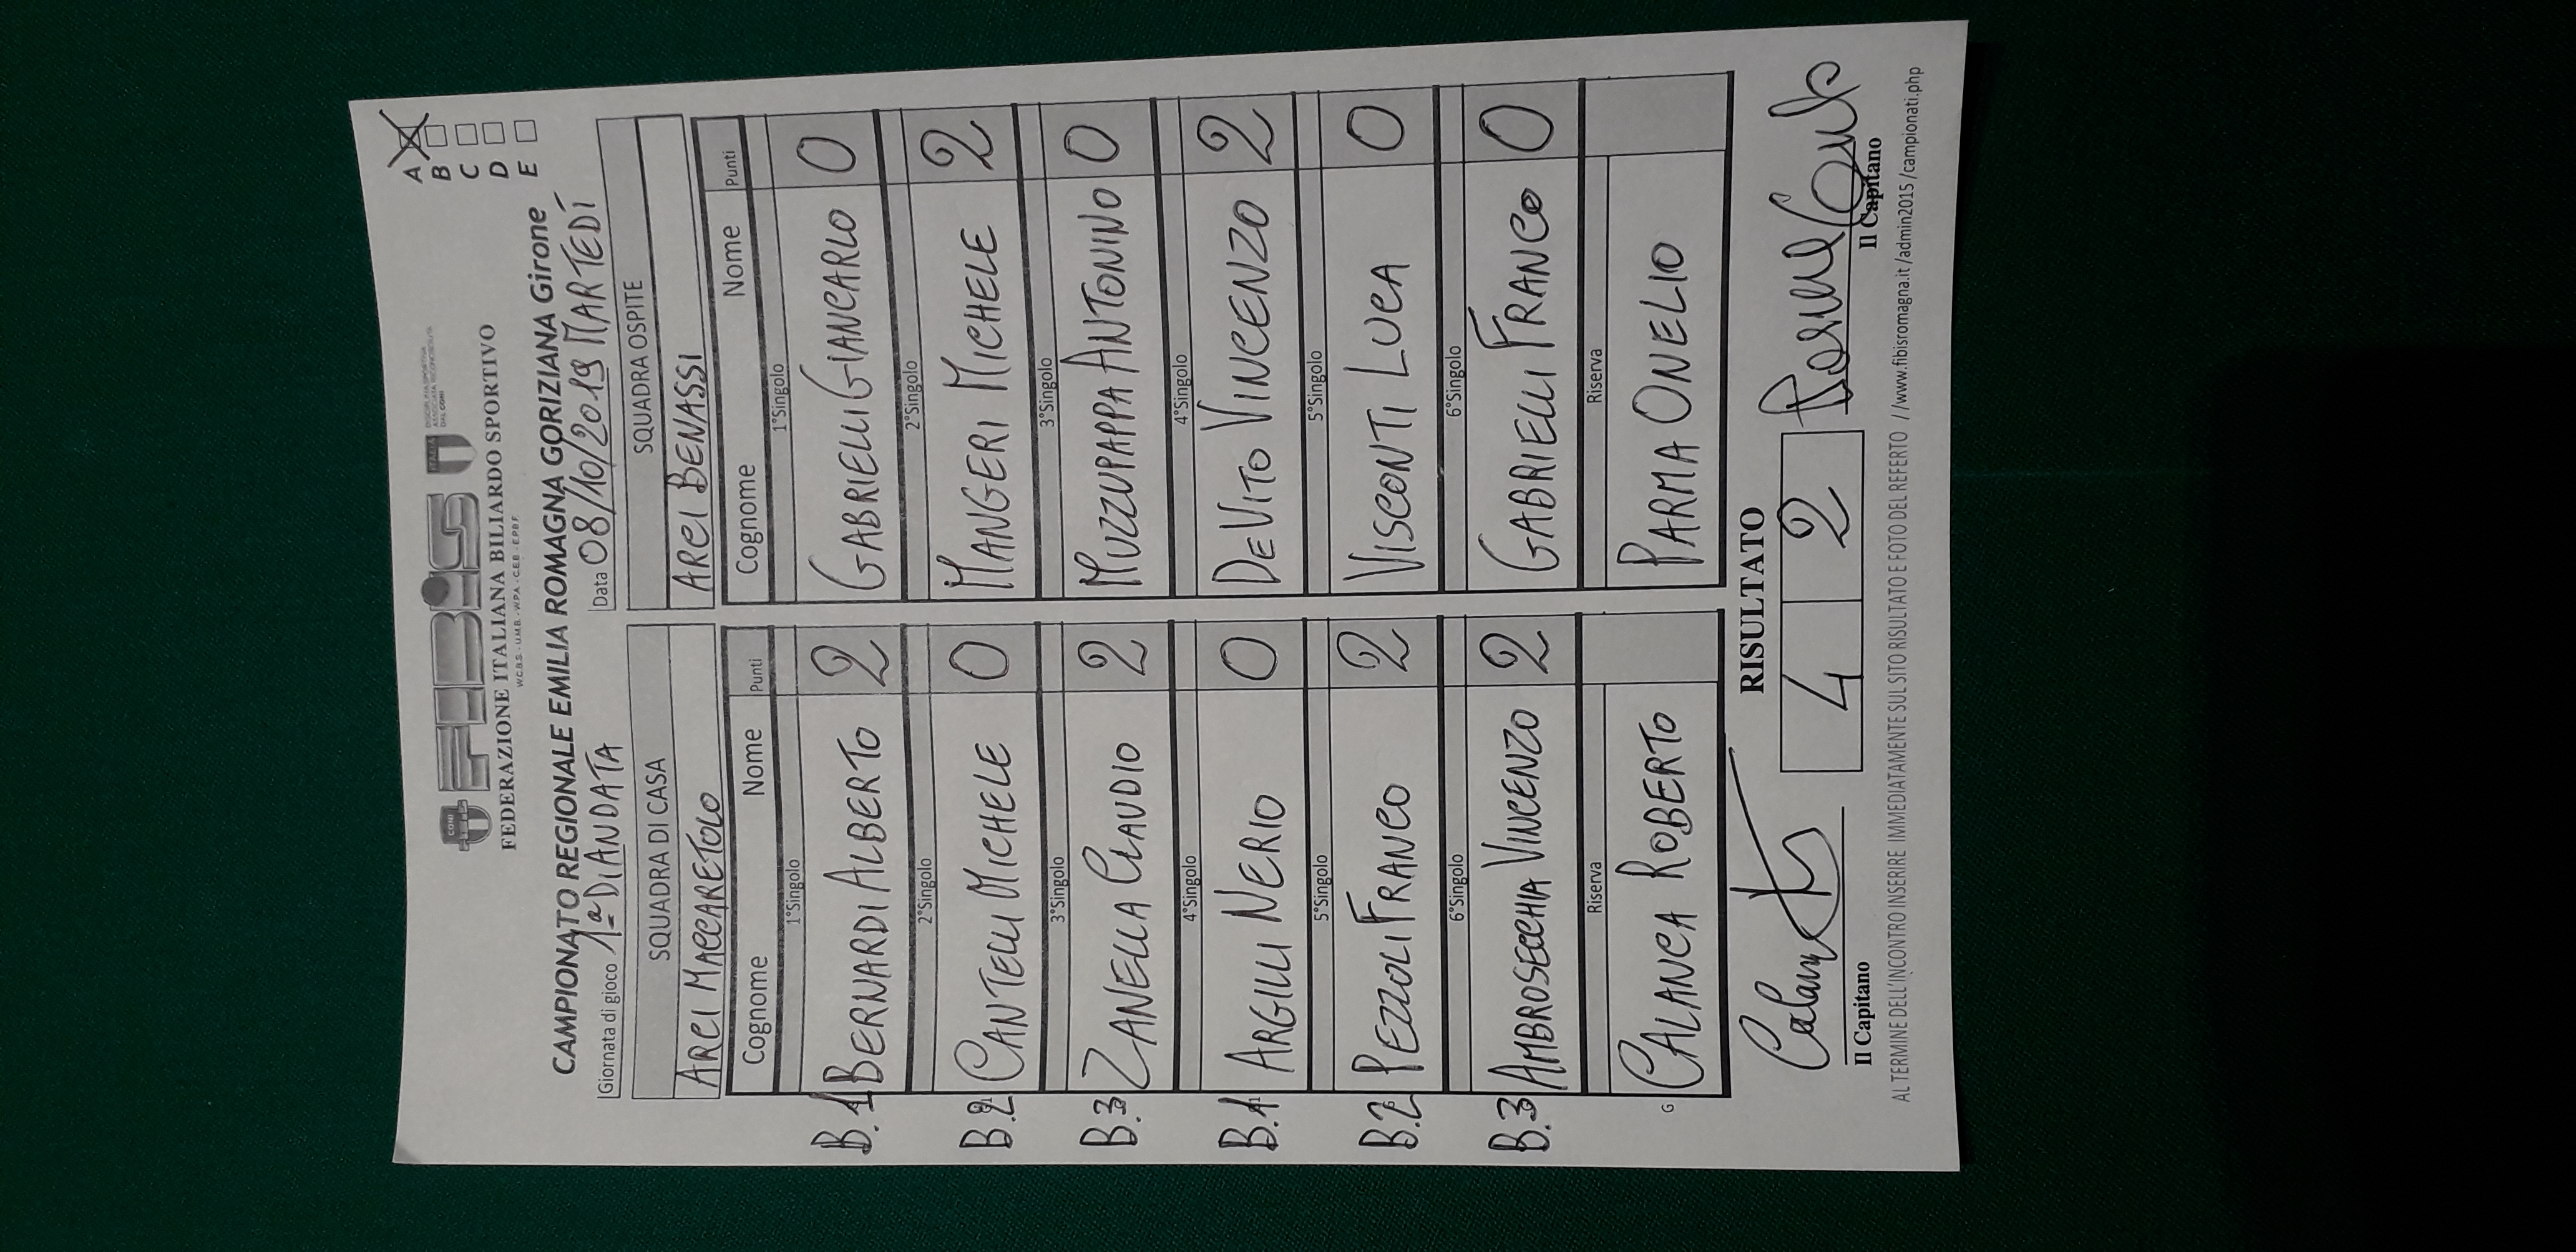 CONI
FEDERAZIONE ITALIANA BILIARDO SPORTIVO
W.C.B.S. - U.M.B. - W.P.A. - C.E.B. - E.P.B.F.
A
B
C
D
E
CAMPIONATO REGIONALE EMILIA ROMAGNA GORIZIANA Girone
Giornata di gioco 1ª DI ANDATA Data 08/10/2019 MARTEDÍ
SQUADRA DI CASA SQUADRA OSPITE
ARCI MACCARETOLO ARCI BENASSI
Cognome Nome Punti Cognome Nome Punti
1°Singolo 1°Singolo
B.1 BERNARDI ALBERTO 2 GABRIELLI GIANCARLO 0
2°Singolo 2°Singolo
B.2 CANTELLI MICHELE 0 MANGERI MICHELE 2
3°Singolo 3°Singolo
B.3 ZANELLA CLAUDIO 2 MUZZUPAPPA ANTONINO 0
4°Singolo 4°Singolo
B.1 ARGILLI NERIO 0 DE VITO VINCENZO 2
5°Singolo 5°Singolo
B.2 PEZZOLI FRANCO 2 VISCONTI LUCA 0
6°Singolo 6°Singolo
B.3 AMBROSECCHIA VINCENZO 2 GABRIELLI FRANCO 0
Riserva Riserva
G CALANCA ROBERTO PARMA ONELIO
RISULTATO
4 2
Il Capitano Il Capitano
AL TERMINE DELL'INCONTRO INSERIRE IMMEDIATAMENTE SUL SITO RISULTATO E FOTO DEL REFERTO //www.fibisromagna.it/admin2015/campionati.php